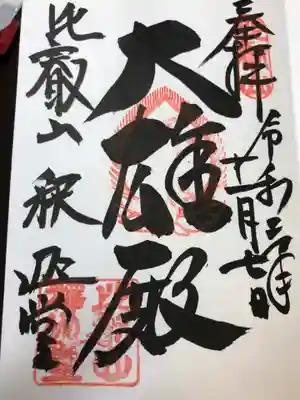 奉拝
令和三年
十一月七日
大雄殿
比叡山 釈迦堂